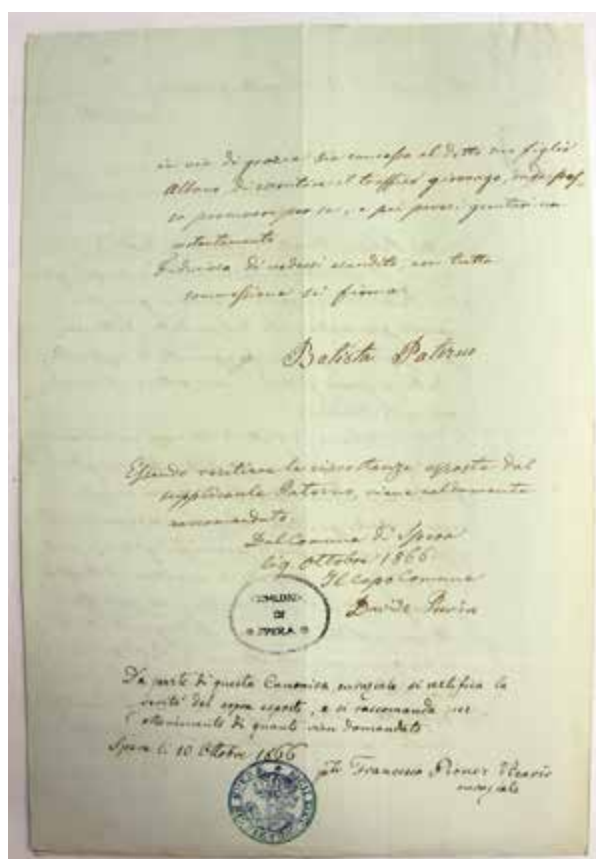 in via di grazia sia concesso al ditto suo figlio
Albano di esercitare il traffico girovago, onde pos-
so per se, e pei poveri genitori un
sostentamento
Fiducioso di vedersi esaudito, con tutta
sommessione si firma
Batista Paterno
Essendo veritiere le circostanze esposte dal
supplicante Paterno, viene caldamente
raccomandato.
Dal Comune di Spera
li 9 Ottobre 1866
Il Capo Comune
Davide Purin
COMUNE
DI
SPERA
Da parte di questa Canonica curaziale si certifica la
verità del sopra esposto, e si raccomanda per
ottenimento di quanto vien domandato
Spera li 10 Ottobre 1866
Francesco Vicario
curaziale